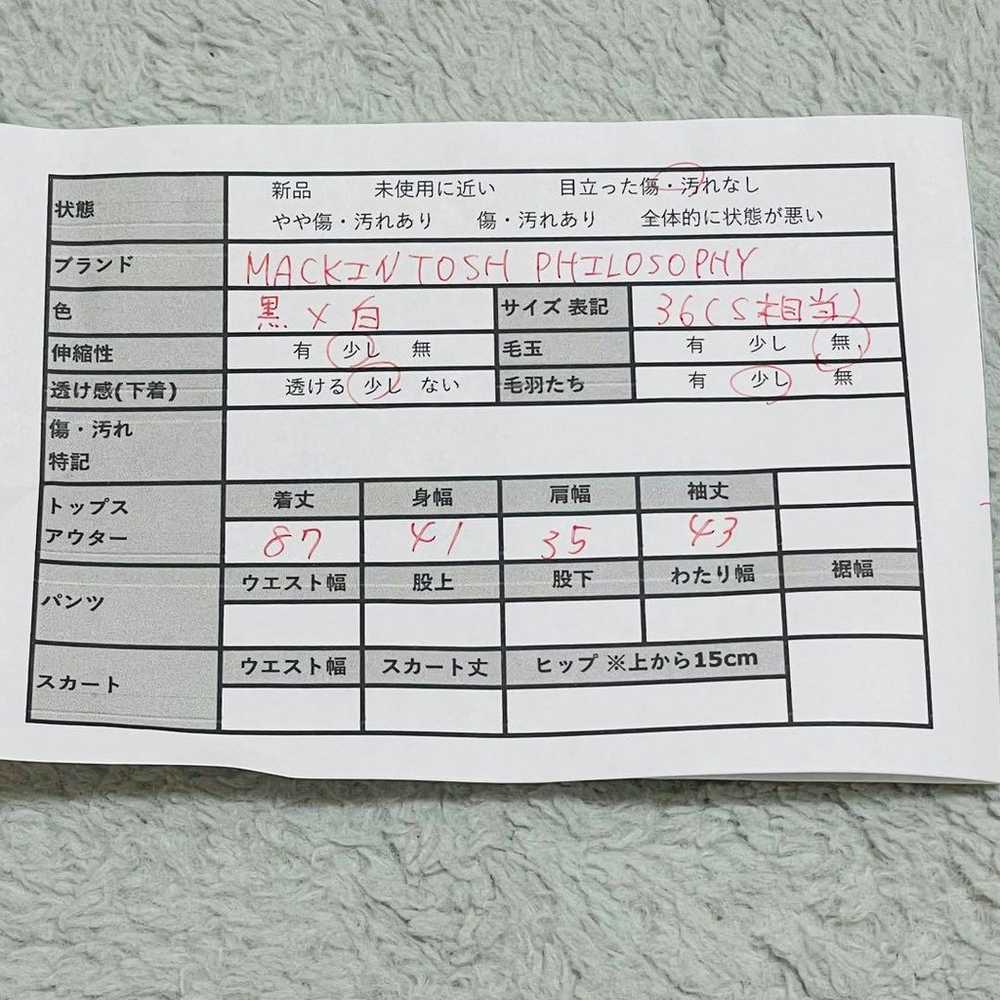 状態
新品 未使用に近い 目立った傷・汚れなし
やや傷・汚れあり 傷・汚れあり 全体的に状態が悪い
ブランド MACKINTOSH PHILOSOPHY
色 黒×白 サイズ 表記 36(S相当)
伸縮性 有 少し 無 毛玉 有 少し 無
透け感(下着) 透ける 少し ない 毛羽たち 有 少し 無
傷・汚れ
特記
トップス
アウター
着丈 身幅 肩幅 袖丈
87 41 35 43
パンツ
ウエスト幅 股上 股下 わたり幅 裾幅
スカート
ウエスト幅 スカート丈 ヒップ ※上から15cm